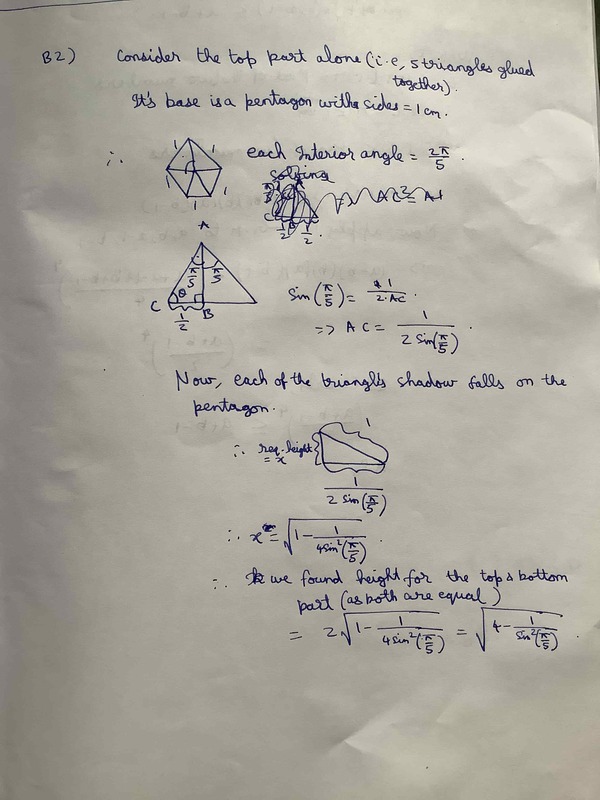 B2) Consider the top part alone (i.e, 5 triangles glued
together).
It's base is a pentagon with sides = 1 cm.
∴ 1 1 1 1 1 each Interior angle = 2π/5 .
solving
C 1/2 1/2 . => AC² = A
A
π/5 π/5
C θ B
1/2
Sin(π/5) = 1/2·AC .
=> AC = 1/2 Sin(π/5) .
Now, each of the triangle's shadow falls on the
pentagon.
∴ req. height = x 1
1/2 Sin(π/5)
∴ x = √(1 - 1/4sin²(π/5)) .
∴ we found height for the top & bottom
part (as both are equal)
= 2√(1 - 1/4sin²(π/5)) = √(4 - 1/Sin²(π/5)) .